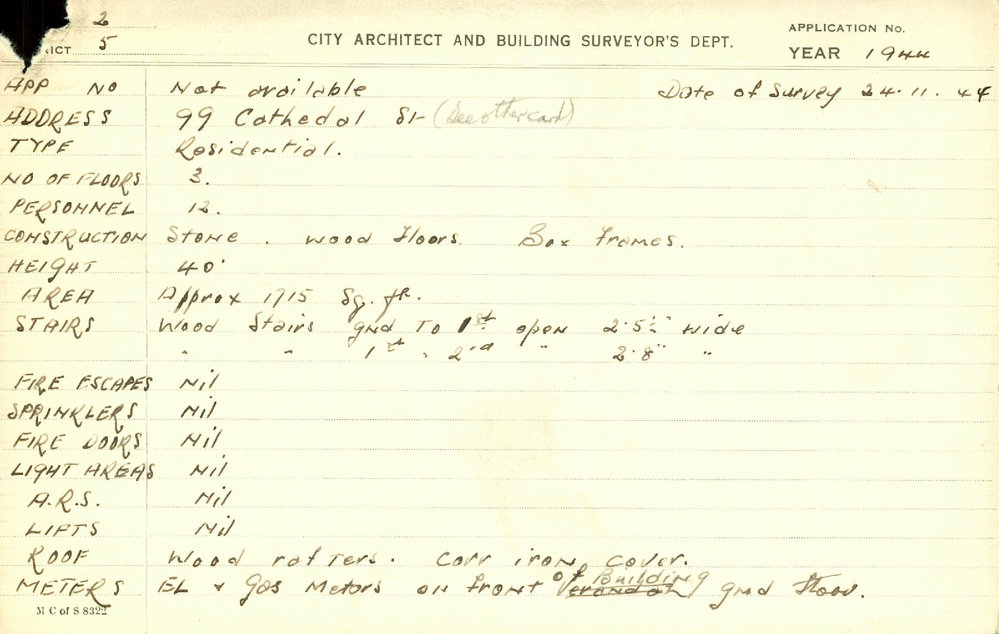 2
RICT 5
CITY ARCHITECT AND BUILDING SURVEYOR'S DEPT.
APPLICATION No.
YEAR 1944
APP NO Not available Date of Survey 24.11.44
ADDRESS 99 Cathedal St (See other card)
TYPE Residential.
NO OF FLOORS 3.
PERSONNEL 12.
CONSTRUCTION Stone. Wood Floors. Box Frames.
HEIGHT 40'
AREA Approx 1715 Sq. ft.
STAIRS Wood Stairs gnd To 1st open 2'5½" wide
" " 1st " 2nd " 2'8" "
FIRE ESCAPES Nil
SPRINKLERS Nil
FIRE DOORS Nil
LIGHT AREAS Nil
A.R.S. Nil
LIFTS Nil
ROOF Wood rafters. Corr iron cover.
METERS EL & Gas Meters on front of Building Verandah gnd Floor.
M C of S 8322